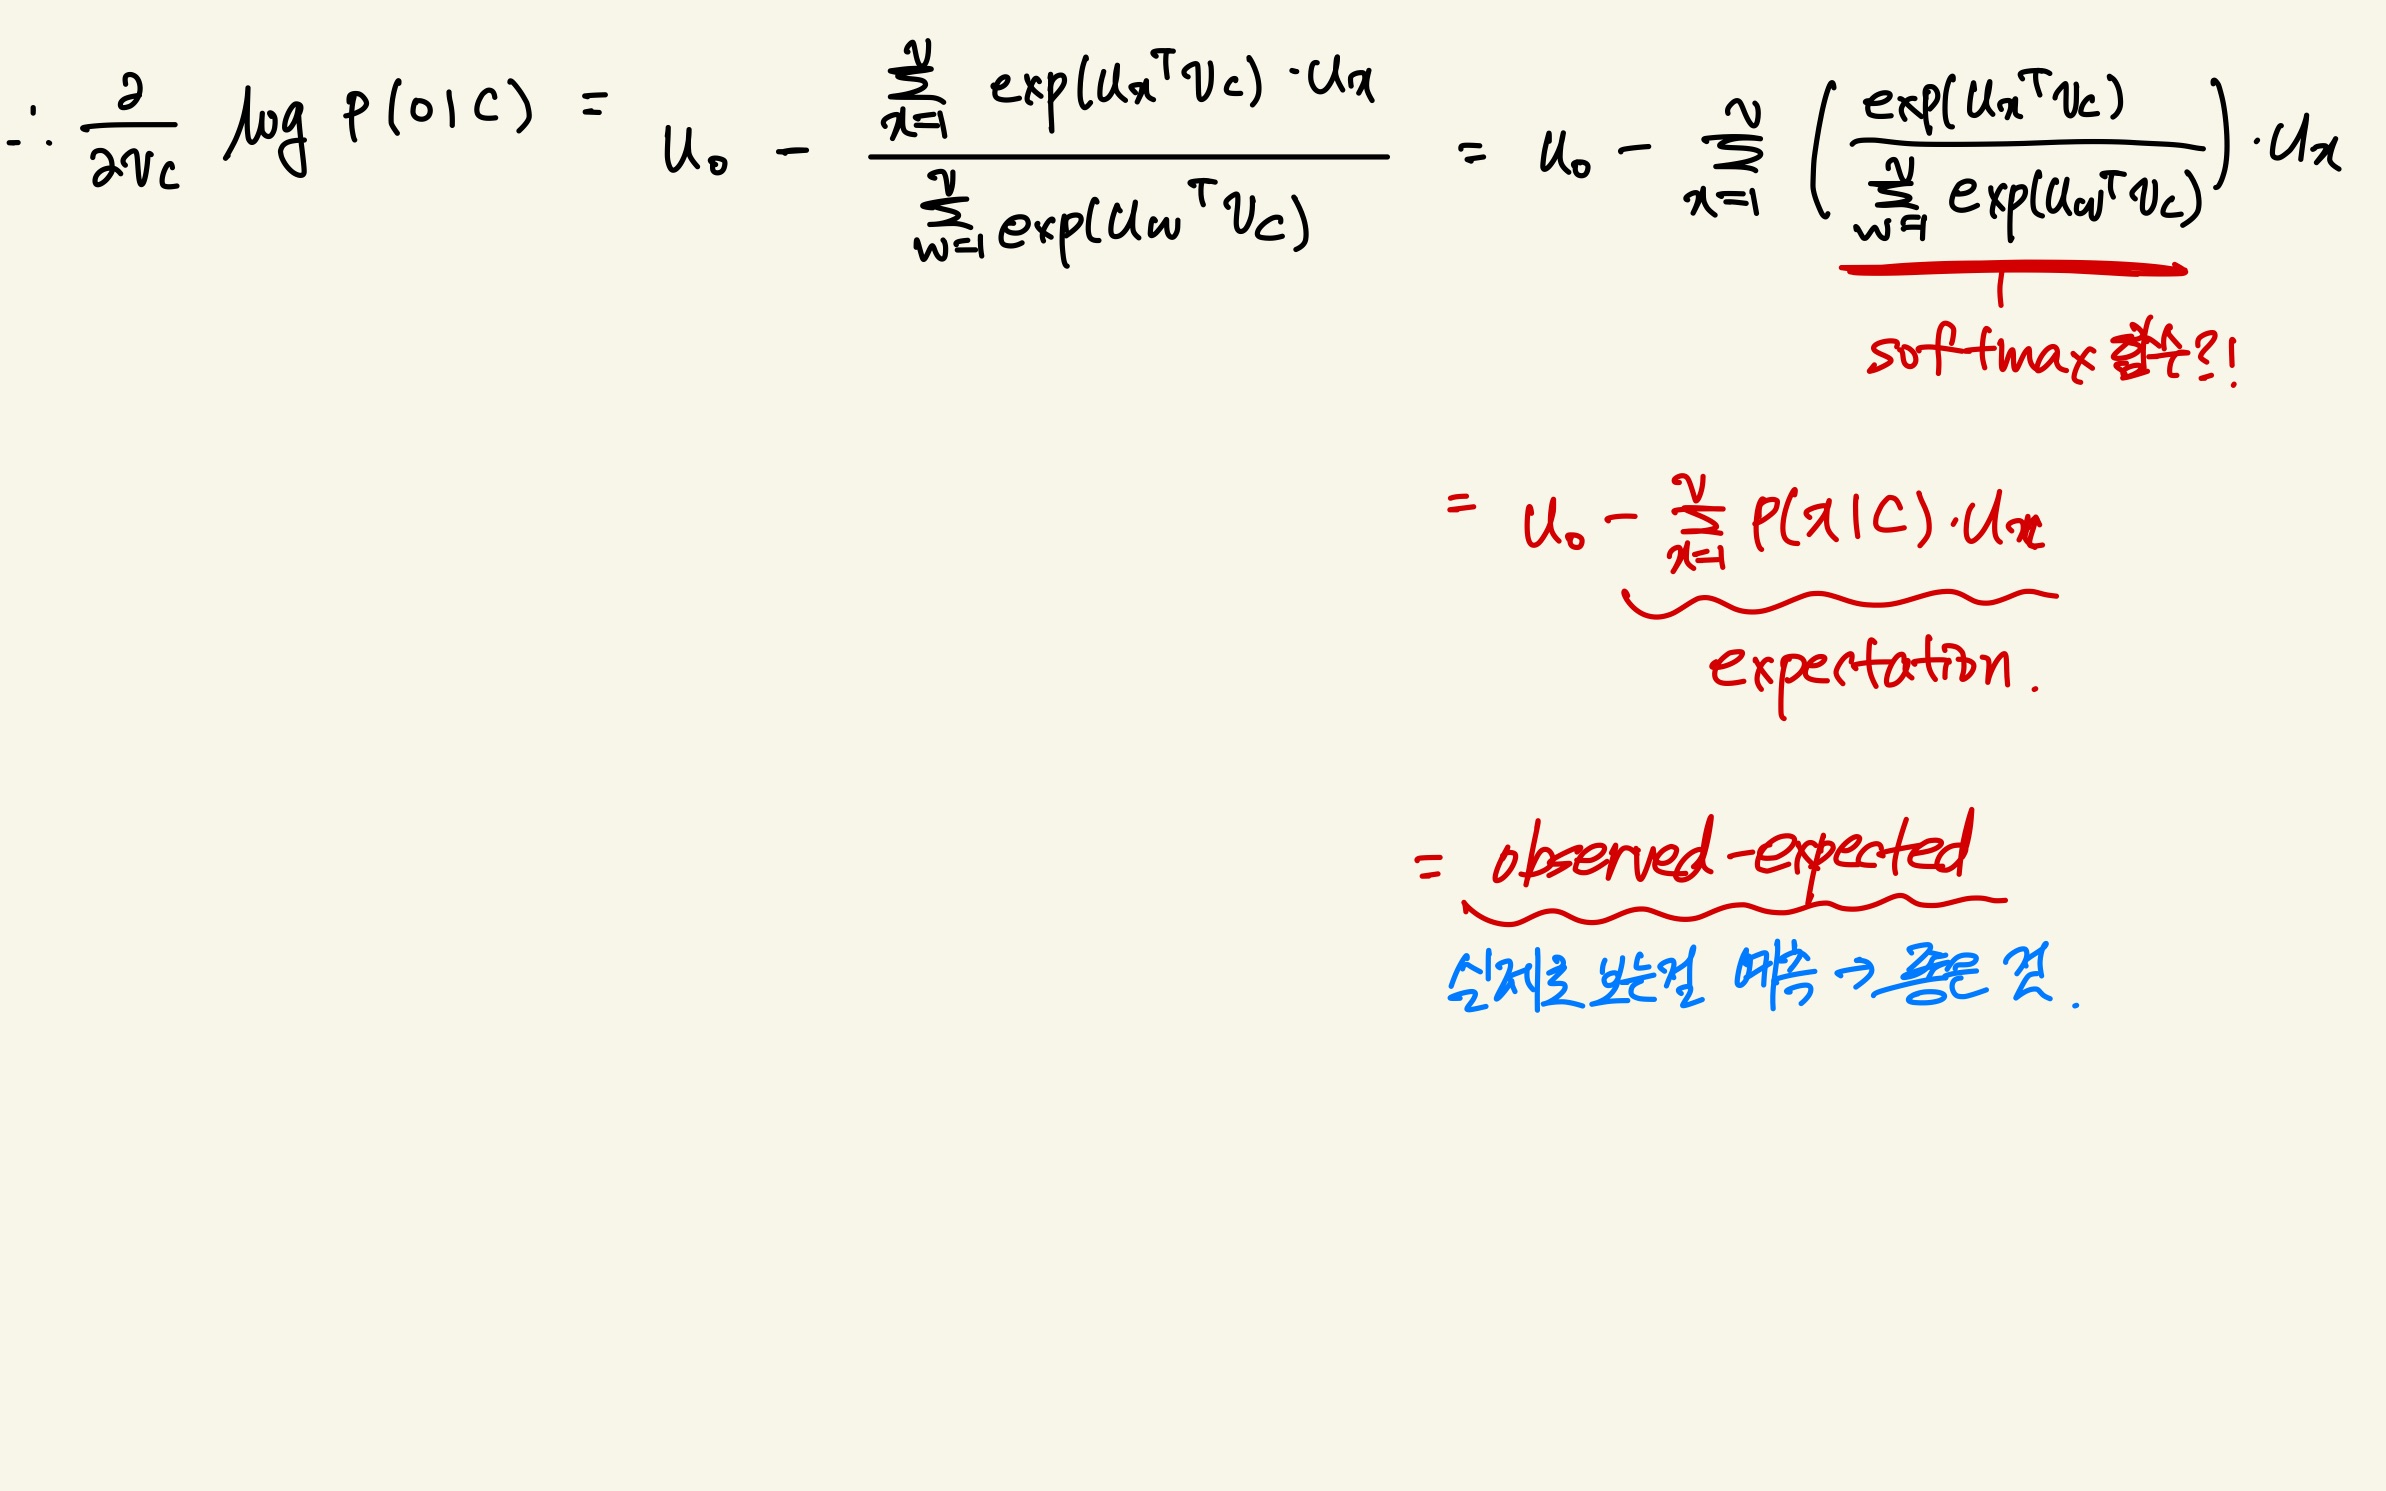 ∴ ∂/∂v_c log p(o|c) = u_o - (∑_{x=1}^{V} exp(u_x^T v_c)·u_x) / (∑_{w=1}^{V} exp(u_w^T v_c)) = u_o - ∑_{x=1}^{V} (exp(u_x^T v_c) / ∑_{w=1}^{V} exp(u_w^T v_c))·u_x
softmax 함수?!
= u_o - ∑_{x=1}^{V} P(x|c)·u_x
expectation.
= observed - expected
실제로 보는것 → 좋은 것.